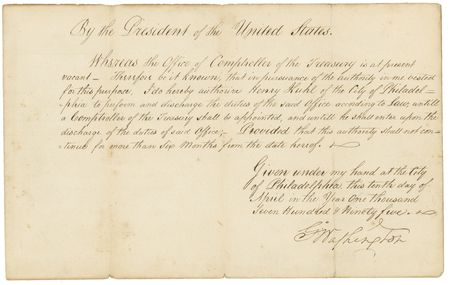 By the President of the United States.
Whereas the Office of Comptroller of the Treasury is at present
vacant – Therefore be it known, that in pursuance of the authority in me vested
for this purpose, I do hereby authorize Henry Kuhl of the City of Philadel-
phia to perform and discharge the duties of the said Office according to Law, untill
a Comptroller of the Treasury shall be appointed, and untill he shall enter upon the
discharge of the duties of said Office; – Provided that this authority shall not con-
tinue for more than Six Months from the date hereof.
Given under my hand at the City
of Philadelphia this tenth day of
April in the Year One thousand
Seven Hundred & Ninety five.
Go Washington